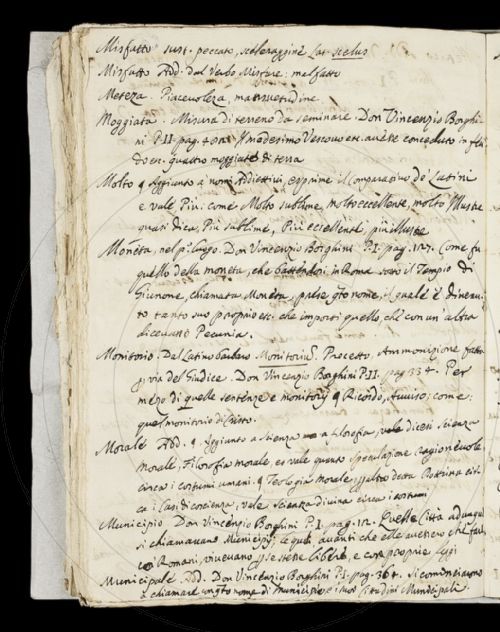 Misfatto sust. peccato, scelleraggine Lat. scelus
Misfatto Add. dal Verbo Misfare: malfatto
Mitezza. Piacevolezza, mansuetudine
Moggiata. Misura di terreno da seminare. Don Vincenzio Borghi-
ni P. II. pag. Il medesimo Vescovo etc. avere conceduto in
etc. quattro moggiate di terra
Molto q Aggiunto a nomi Addiettivi, esprime il Comparativo de Latini
e vale Più: come Molto sublime, molto eccellente, molto Illustre
quasi dica, Più sublime, Più eccellente, più illustre
Monéta, nel p.o luogo. Don Vincenzio Borghini P. I. pag. 127. Come fu
quello della moneta, che battendosi in Roma sotto il Tempio di
Giunone, chiamata Monéta, prese qto nome, il quale è divenu-
to tanto suo proprio etc. che importi quello, che con un'altra
dicevano Pecunia.
Monitorio. Dal Latino barbaro Monitorius. Precetto. Ammonizione fatta
p via del Giudice. Don Vincenzio Borghini P. II. pag. 334. Per
mezo di quelle sentenze e monitorj q Ricordo, Avviso; come:
quel monitorio di Cristo.
Morale Add. q. Aggiunto a Scienza o a Filosofia, vale dicesi Scienza
morale, Filosofia morale, et vale quanto speculazione ragionevole
circa i costumi umani. q Teologia morale,
ca i Casi di coscienza, vale Scienza divina circa i costumi
Municipio Don Vincenzio Borghini P. I. pag. 12. Quelle Città adunque
si chiamavano Municipj le quali, avanti che elle avessero che fare
co' Romani, vivevano p se stesse libere, e con proprie Leggi
Municipale Add. Don Vincenzio Borghini P. I. pag. 364. Si cominciarono
a chiamare con qto nome di Municipio e i suoi Cittadini Municipali.